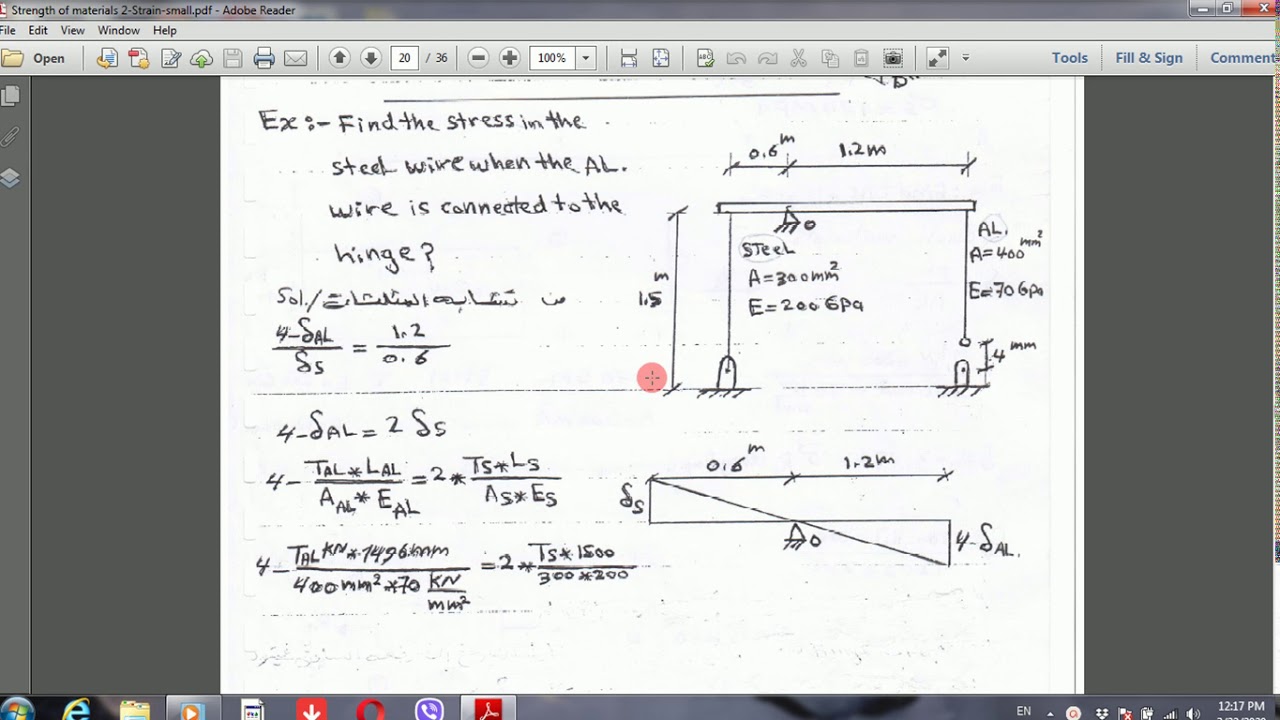 Strength of materials 2-Strain-small.pdf - Adobe Reader
File Edit View Window Help
Open
20 / 36
100%
Tools
Fill & Sign
Comment
"D"
Ex:- Find the stress in the
steel wire when the AL.
wire is connected to the
hinge?
Sol./ من تشابه المثلثات
4-δAL / δS = 1.2 / 0.6
4-δAL = 2 δS
4- TAL*LAL / AAL*EAL = 2* TS*LS / AS*ES
4- TAL KN*1496mm / 400mm²*70 KN/mm² = 2* TS*1500 / 300*200
0.6 m
1.2m
O
STEEL
A=300mm²
E=200Gpa
AL.
A=400mm²
E=70Gpa
1.5 m
4 mm
0.6 m
1.2m
δS
O
4-δAL.
EN
12:17 PM